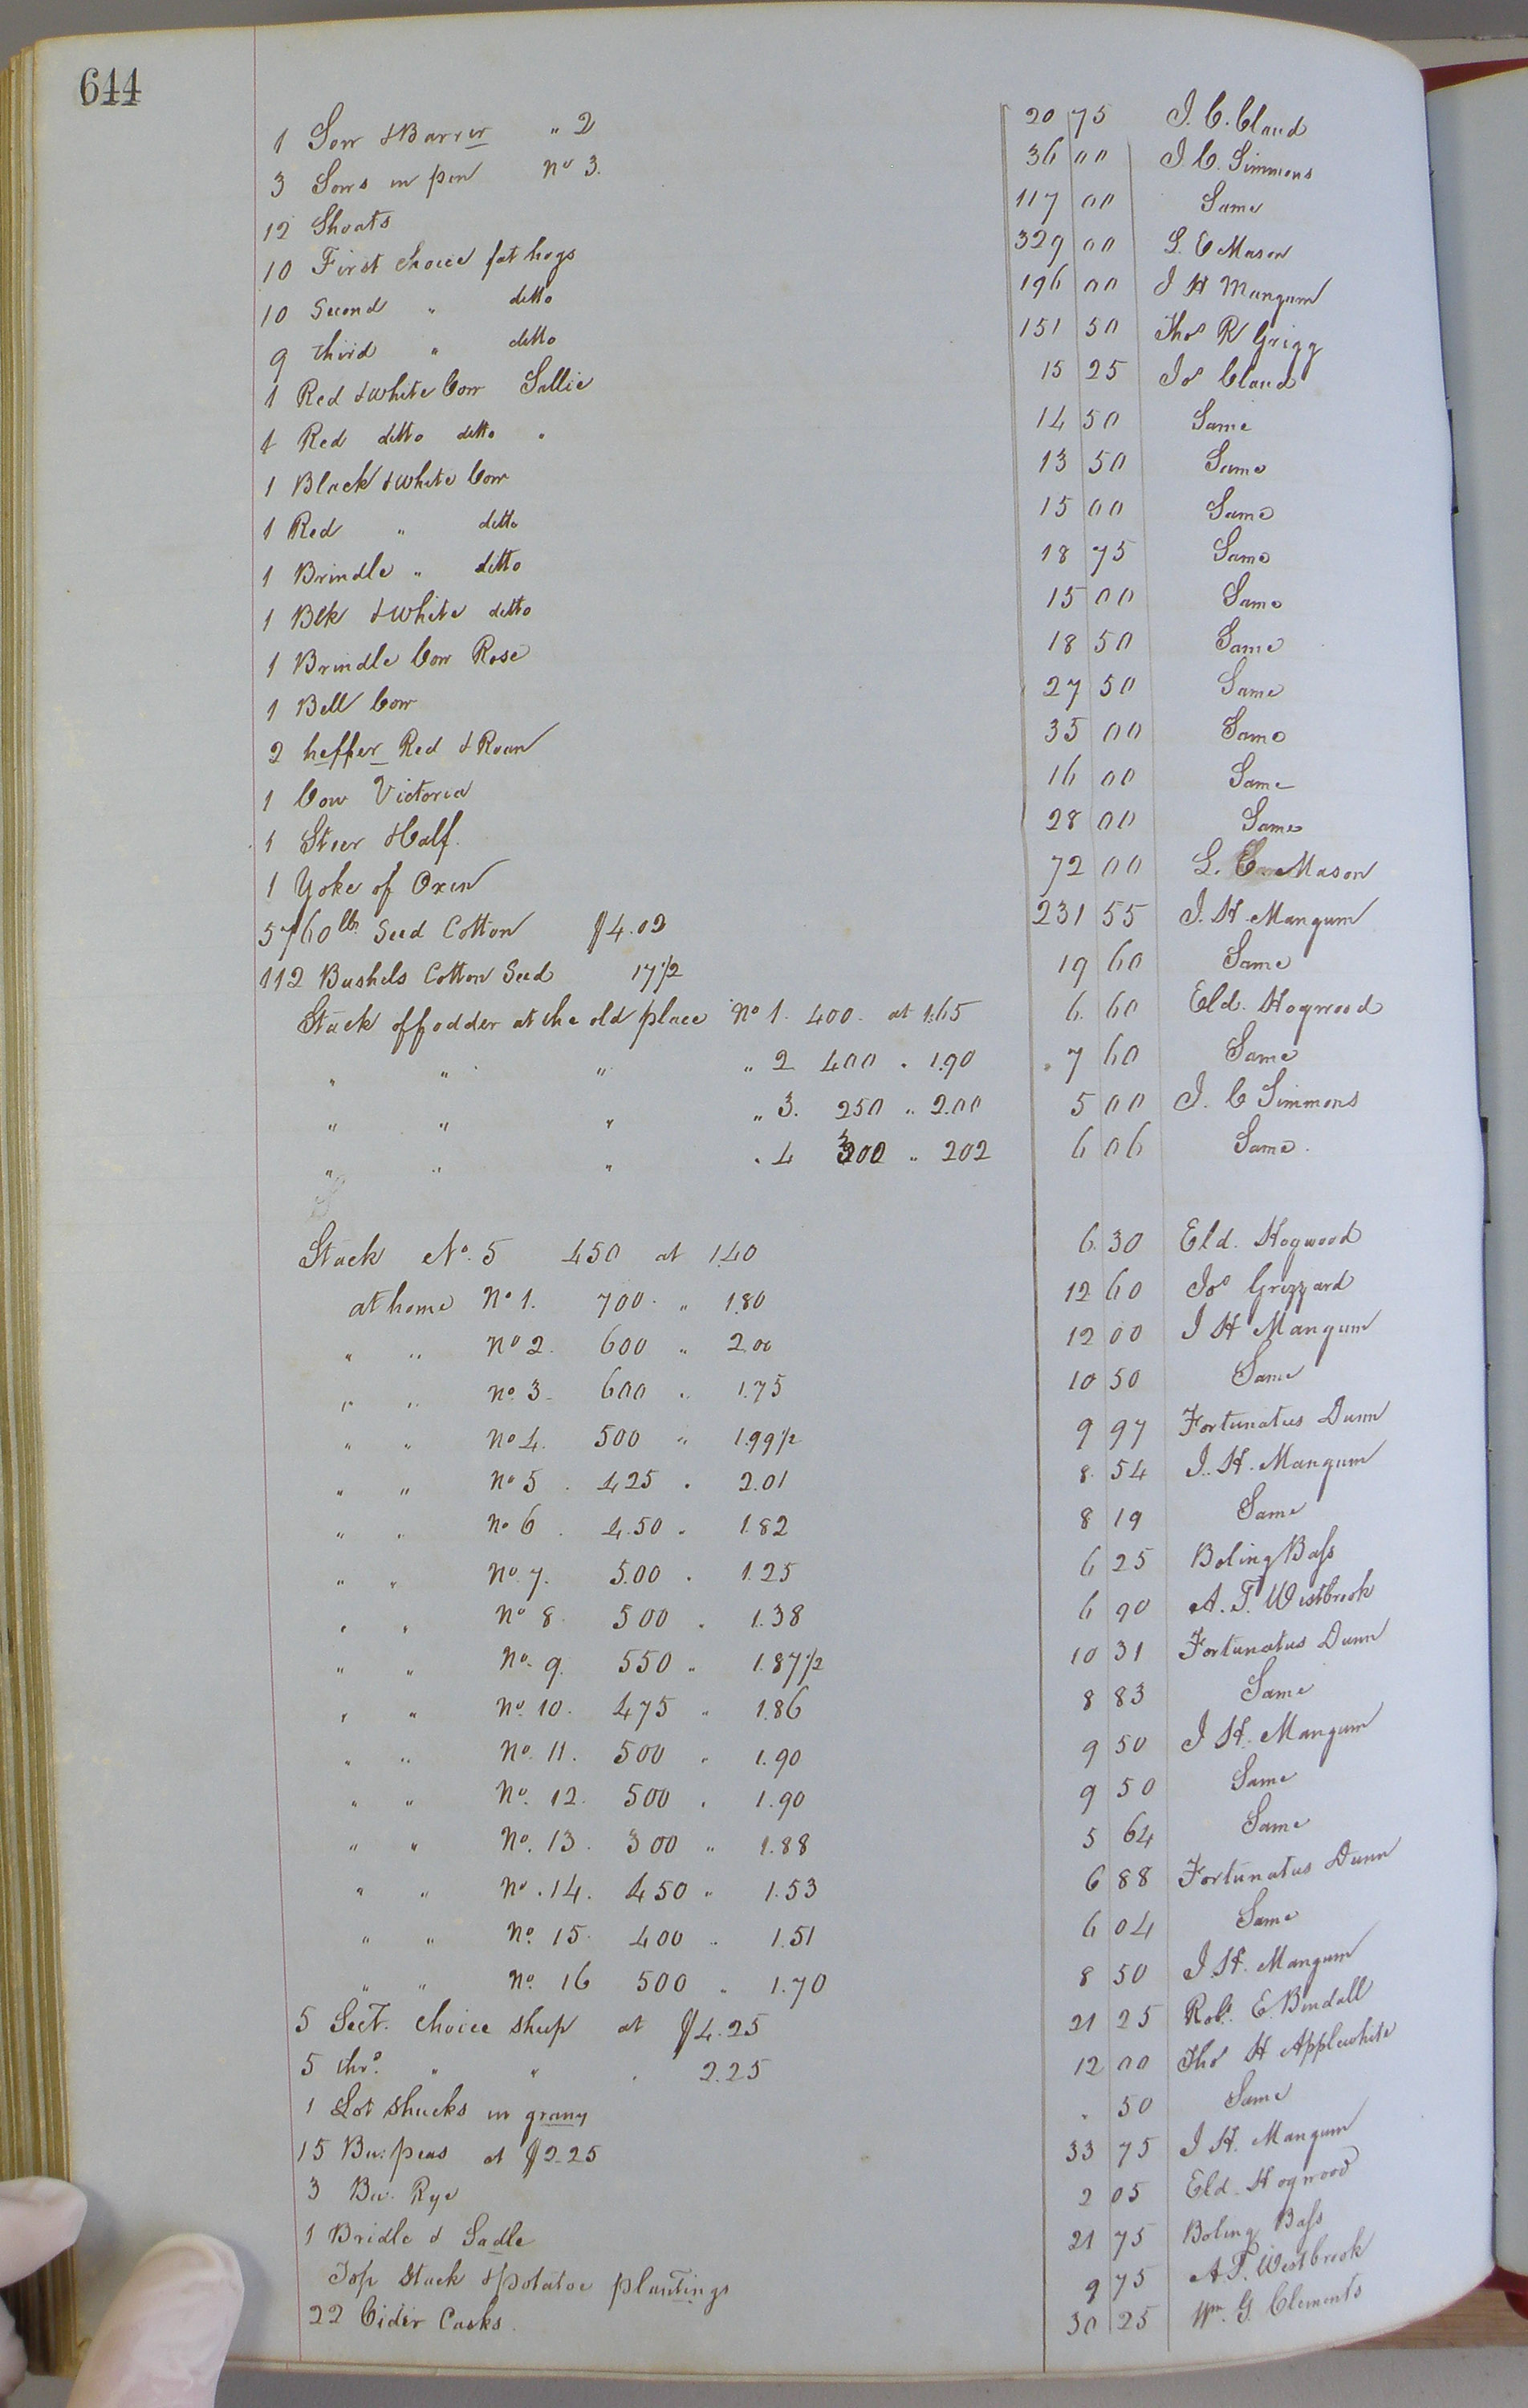 644
1 Sow & Barrer " 2 20 75 J. C. Claud
3 Sows in pen No 3. 36 00 J. C. Simmons
12 Shoats 117 00 Same
10 First Choice fat hogs 329 00 L. E Mason
10 Second " ditto 196 00 J H Mangum
9 third " ditto 151 50 Thos R Grigg
1 Red & White Cow Sallie 15 25 Jos Claud
1 Red ditto ditto " 14 50 Same
1 Black & White Cow 13 50 Same
1 Red " ditto 15 00 Same
1 Brindle " ditto 18 75 Same
1 Blk & White ditto 15 00 Same
1 Brindle Cow Rose 18 50 Same
1 Bell Cow 27 50 Same
2 heffer Red & Roan 35 00 Same
1 Cow Victoria 16 00 Same
1 Steer & Calf. 28 00 Same
1 Yoke of Oxen 72 00 L. E. Mason
5760 lb Seed Cotton $4.02 231 55 J. H. Mangum
112 Bushels Cotton Seed 17 1/2 19 60 Same
Stack of fodder at the old place No 1. 400. at 1.65 6. 60 Eld. Hogwood
" " " " 2 400 " 1.90 7 60 Same
" " " " 3. 250 " 2.00 5 00 J. C Simmons
" " " " 4 300 " 202 6 06 Same.
Stack No. 5 450 at 1.40 6. 30 Eld. Hogwood
at home No 1. 700. " 1.80 12 60 Jos Grizzard
" " No 2. 600 " 2.00 12 00 J H Mangum
" " No. 3 600 " 1.75 10 50 Same
" " No 4. 500 " 1.99 1/2 9 97 Fortunatus Dunn
" " No 5. 425 " 2.01 8. 54 J. H. Mangum
" " No 6. 4.50 " 1.82 8 19 Same
" " No. 7. 5.00 " 1.25 6 25 Boling Bass
" " No 8. 500 " 1.38 6 90 A. T. Westbrook
" " No. 9. 550 " 1.87 1/2 10 31 Fortunatus Dunn
" " No. 10. 475 " 1.86 8 83 Same
" " No. 11. 500 " 1.90 9 50 J. H. Mangum
" " No. 12. 500 " 1.90 9 50 Same
" " No. 13. 300 " 1.88 5 64 Same
" " No. 14. 450 " 1.53 6 88 Fortunatus Dunn
" " No. 15. 400 " 1.51 6 04 Same
" " No. 16 500 " 1.70 8 50 J. H. Mangum
5 Sect. Choice sheep at $4.25 21 25 Robt. E. Bendall
5 thrd. " " " 2.25 12 00 Thos H Applewhite
1 Lot Shucks in grany . 50 Same
15 Bu: peas at $2.25 33 75 J H. Mangum
3 Bu. Rye 2 05 Eld. Hogwood
1 Bridle & Sadle 21 75 Boling Bass
Top Stack & potatoe plantings 9 75 A. T. Westbrook
22 Cider Casks. 30 25 Wm. G. Clements